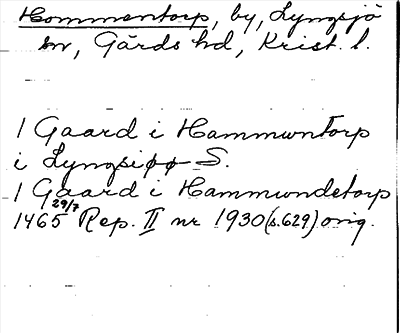 Hommentorp, by, Lyngsjö
sn, Gärds hd, Krist. l.
1 Gaard i Hammwntorp
i Lyngsiøø S.
1 Gaard i Hammwndetorp
1465 29/7 Rep. II nr 1930 (s.629) orig.